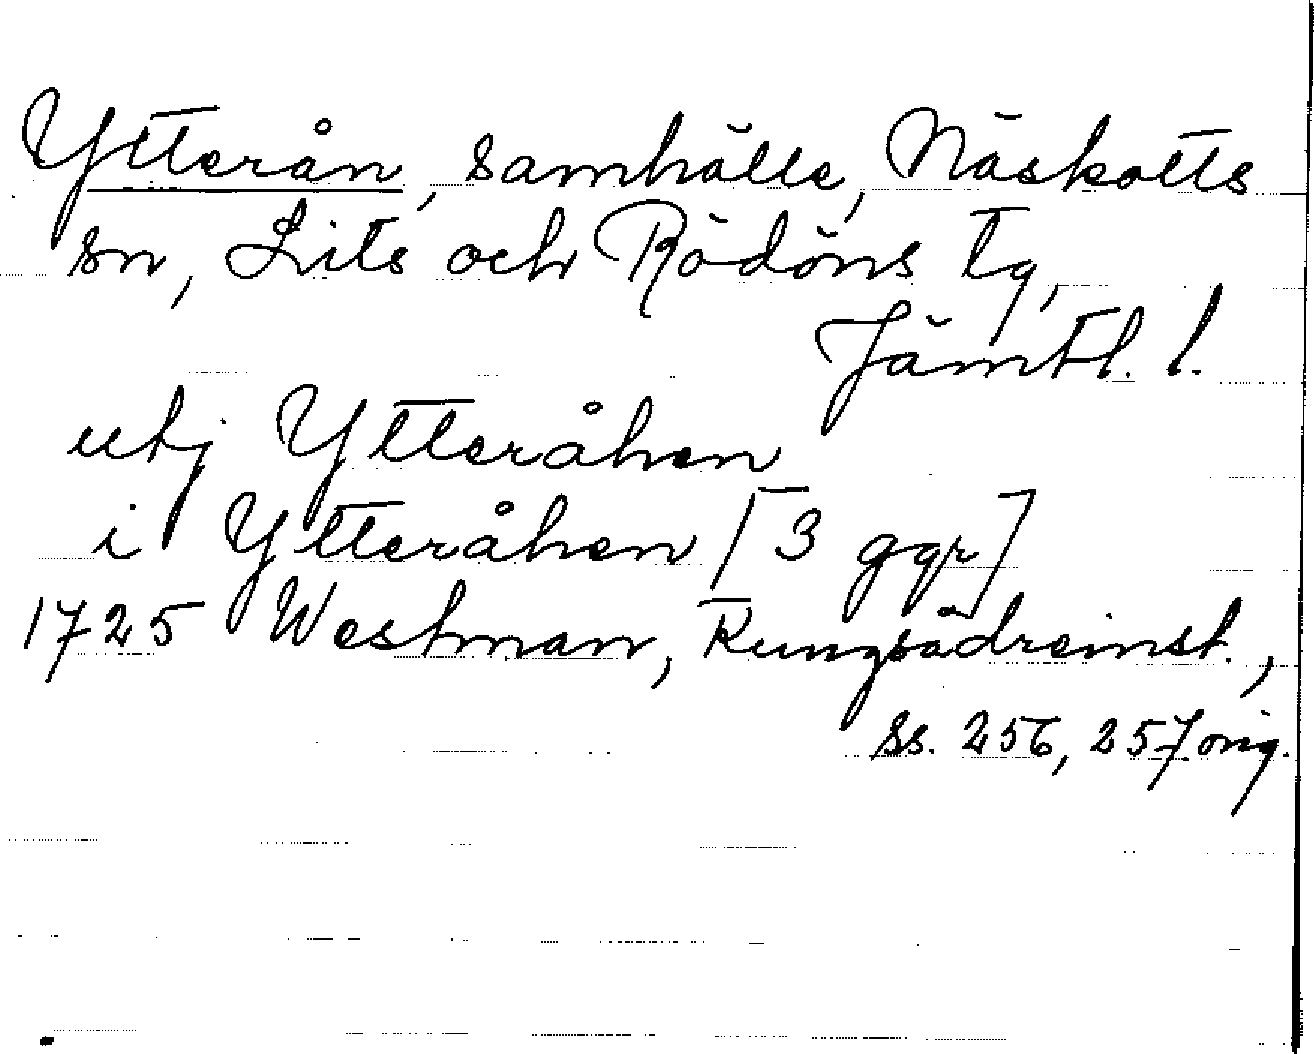 Ytterån, samhälle, Näskotts
sn, Lits och Rödöns tg,
Jämtl. l.
utj Ytteråhen
i Ytteråhen [3 ggr]
1725 Westman, Kungsådreinst.,
ss. 256, 257 orig.